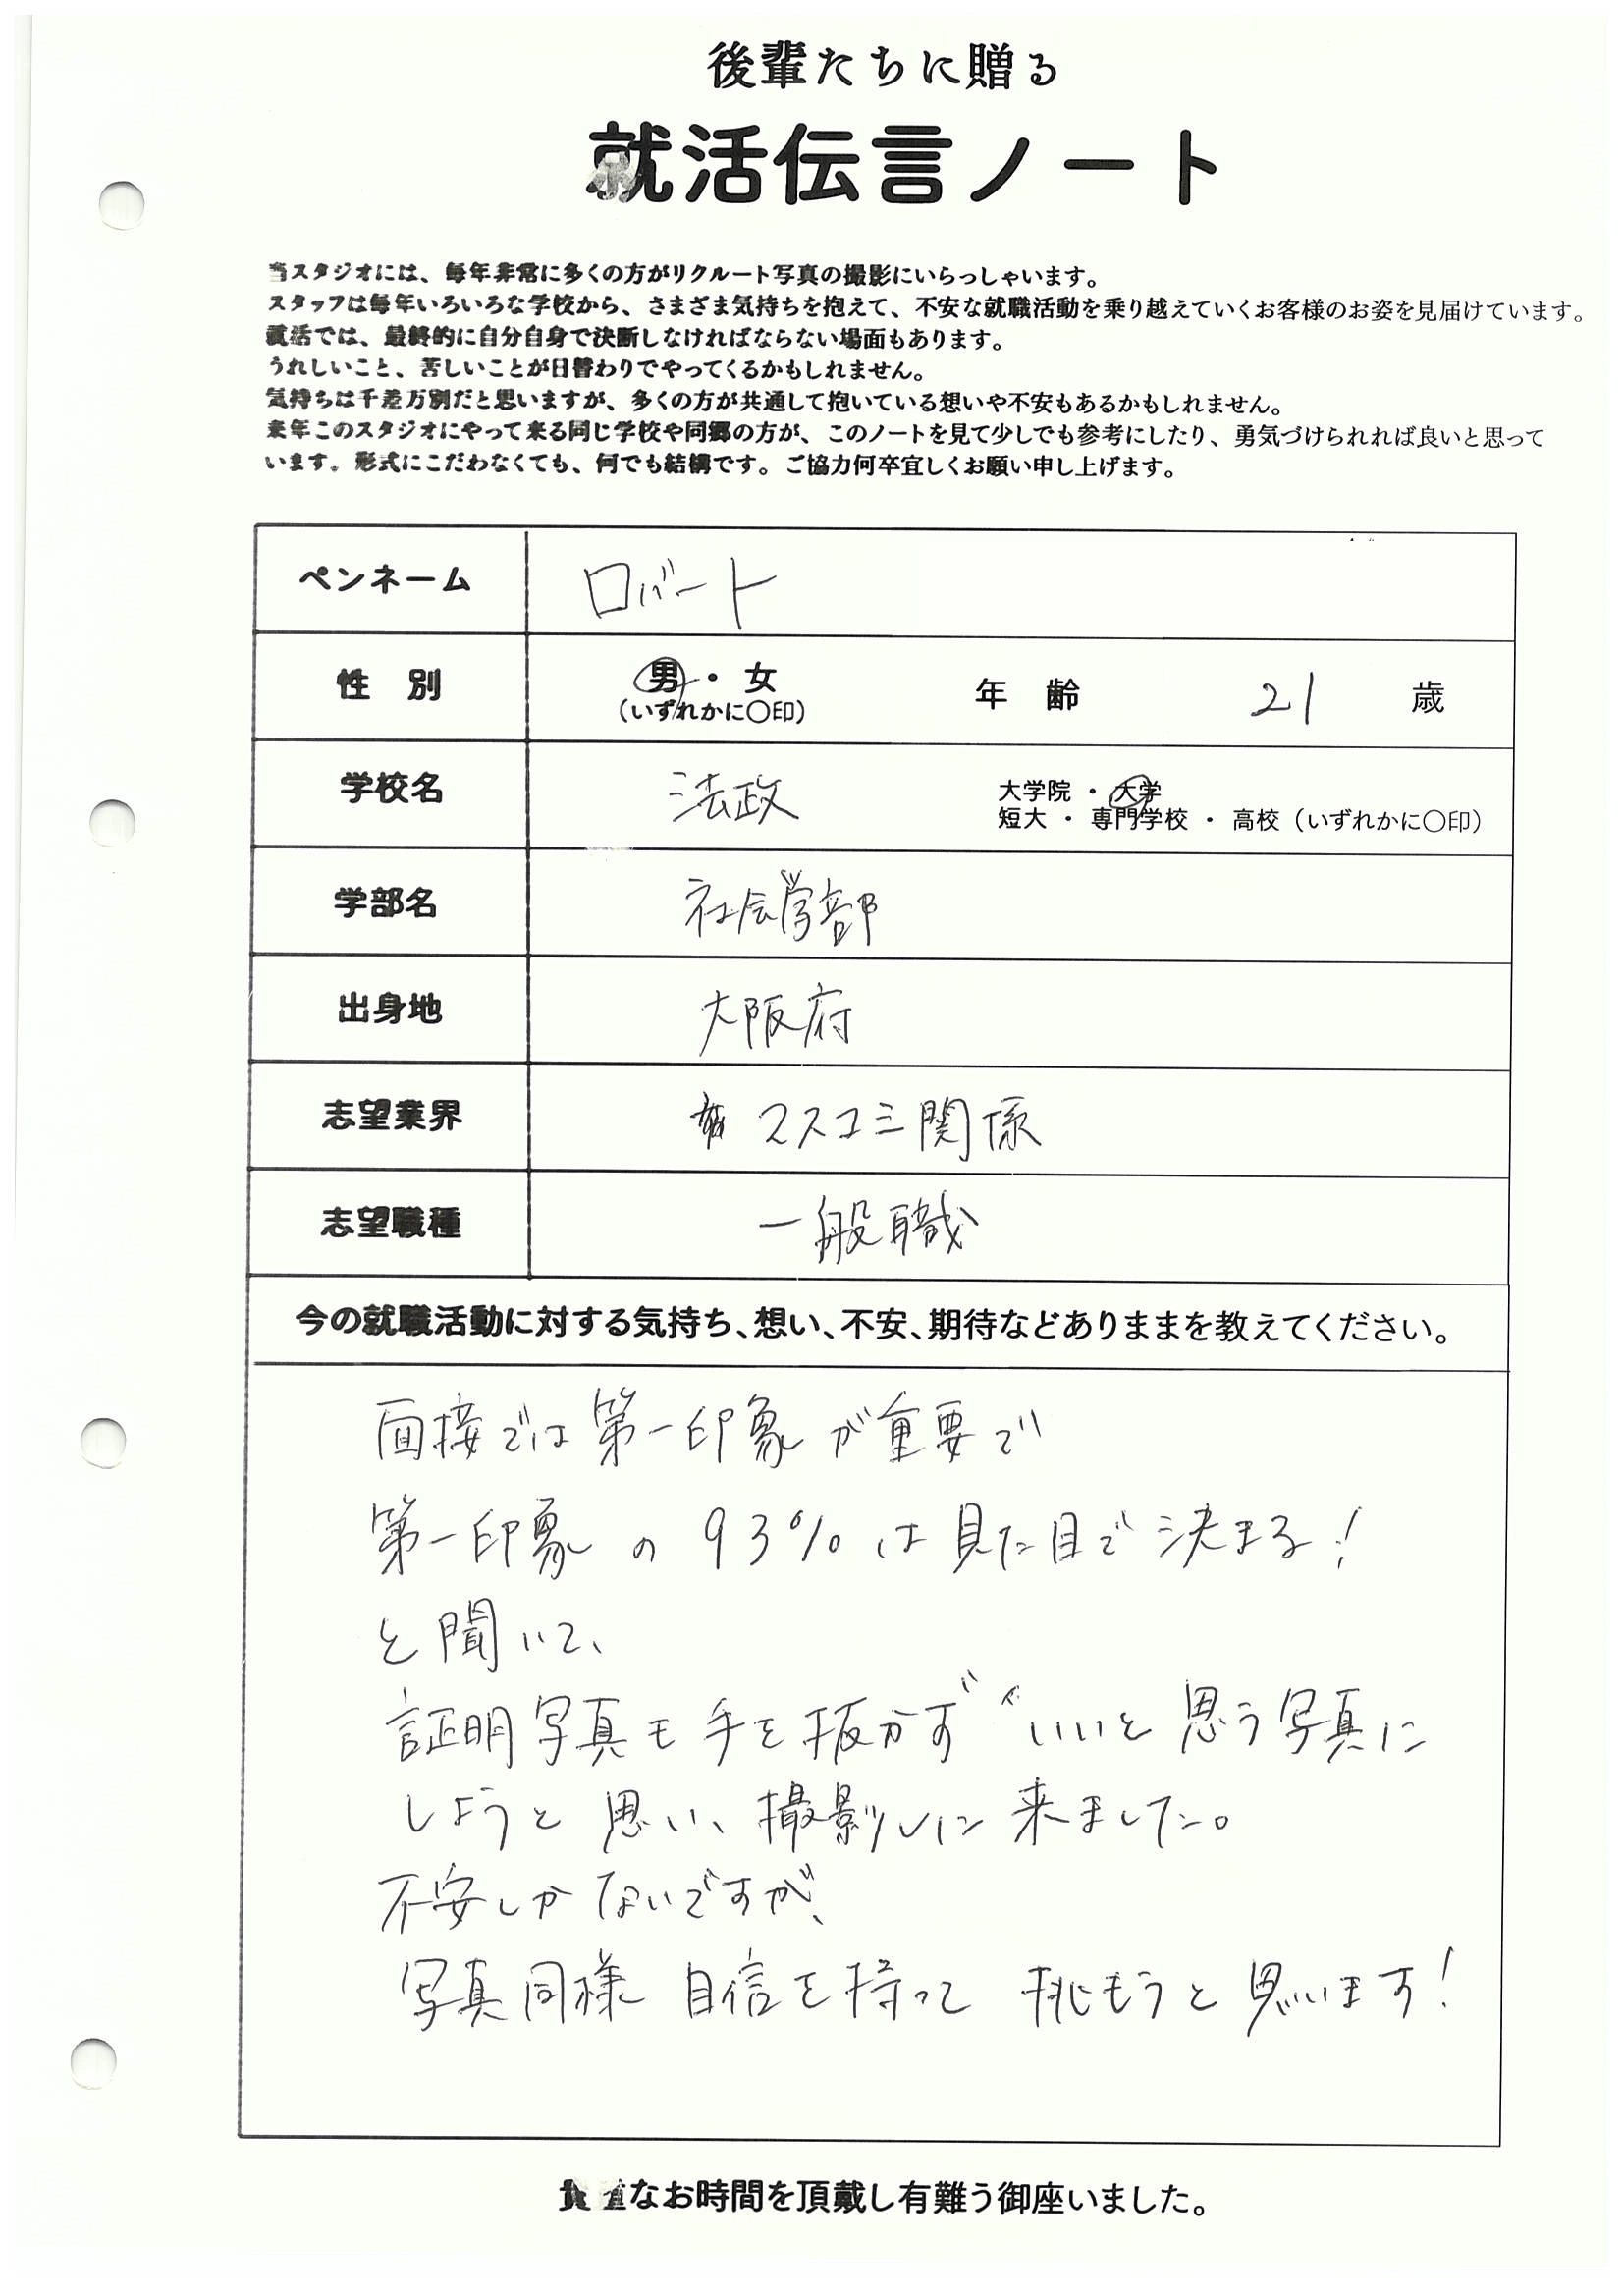 後輩たちに贈る
就活伝言ノート
当スタジオには、毎年非常に多くの方がリクルート写真の撮影にいらっしゃいます。
スタッフは毎年いろいろな学校から、さまざま気持ちを抱えて、不安な就職活動を乗り越えていくお客様のお姿を見届けています。
就活では、最終的に自分自身で決断しなければならない場面もあります。
うれしいこと、苦しいことが日替わりでやってくるかもしれません。
気持ちは千差万別だと思いますが、多くの方が共通して抱いている想いや不安もあるかもしれません。
来年このスタジオにやって来る同じ学校や同郷の方が、このノートを見て少しでも参考にしたり、勇気づけられれば良いと思って
います。形式にこだわなくても、何でも結構です。ご協力何卒宜しくお願い申し上げます。
ペンネーム ロバート
性 別 男・女 年 齢 21 歳
(いずれかに〇印)
学校名 法政 大学院・大学
短大・専門学校・高校(いずれかに〇印)
学部名 社会学部
出身地 大阪府
志望業界 マスコミ関係
志望職種 一般職
今の就職活動に対する気持ち、想い、不安、期待などありままを教えてください。
面接では第一印象が重要で
第一印象の93%は見た目で決まる!
と聞いて、
証明写真も手を抜かず いいと思う写真に
しようと思い、撮影しに来ました。
不安しかないですが、
写真同様 自信を持って 挑もうと思います!
貴重なお時間を頂戴し有難う御座いました。